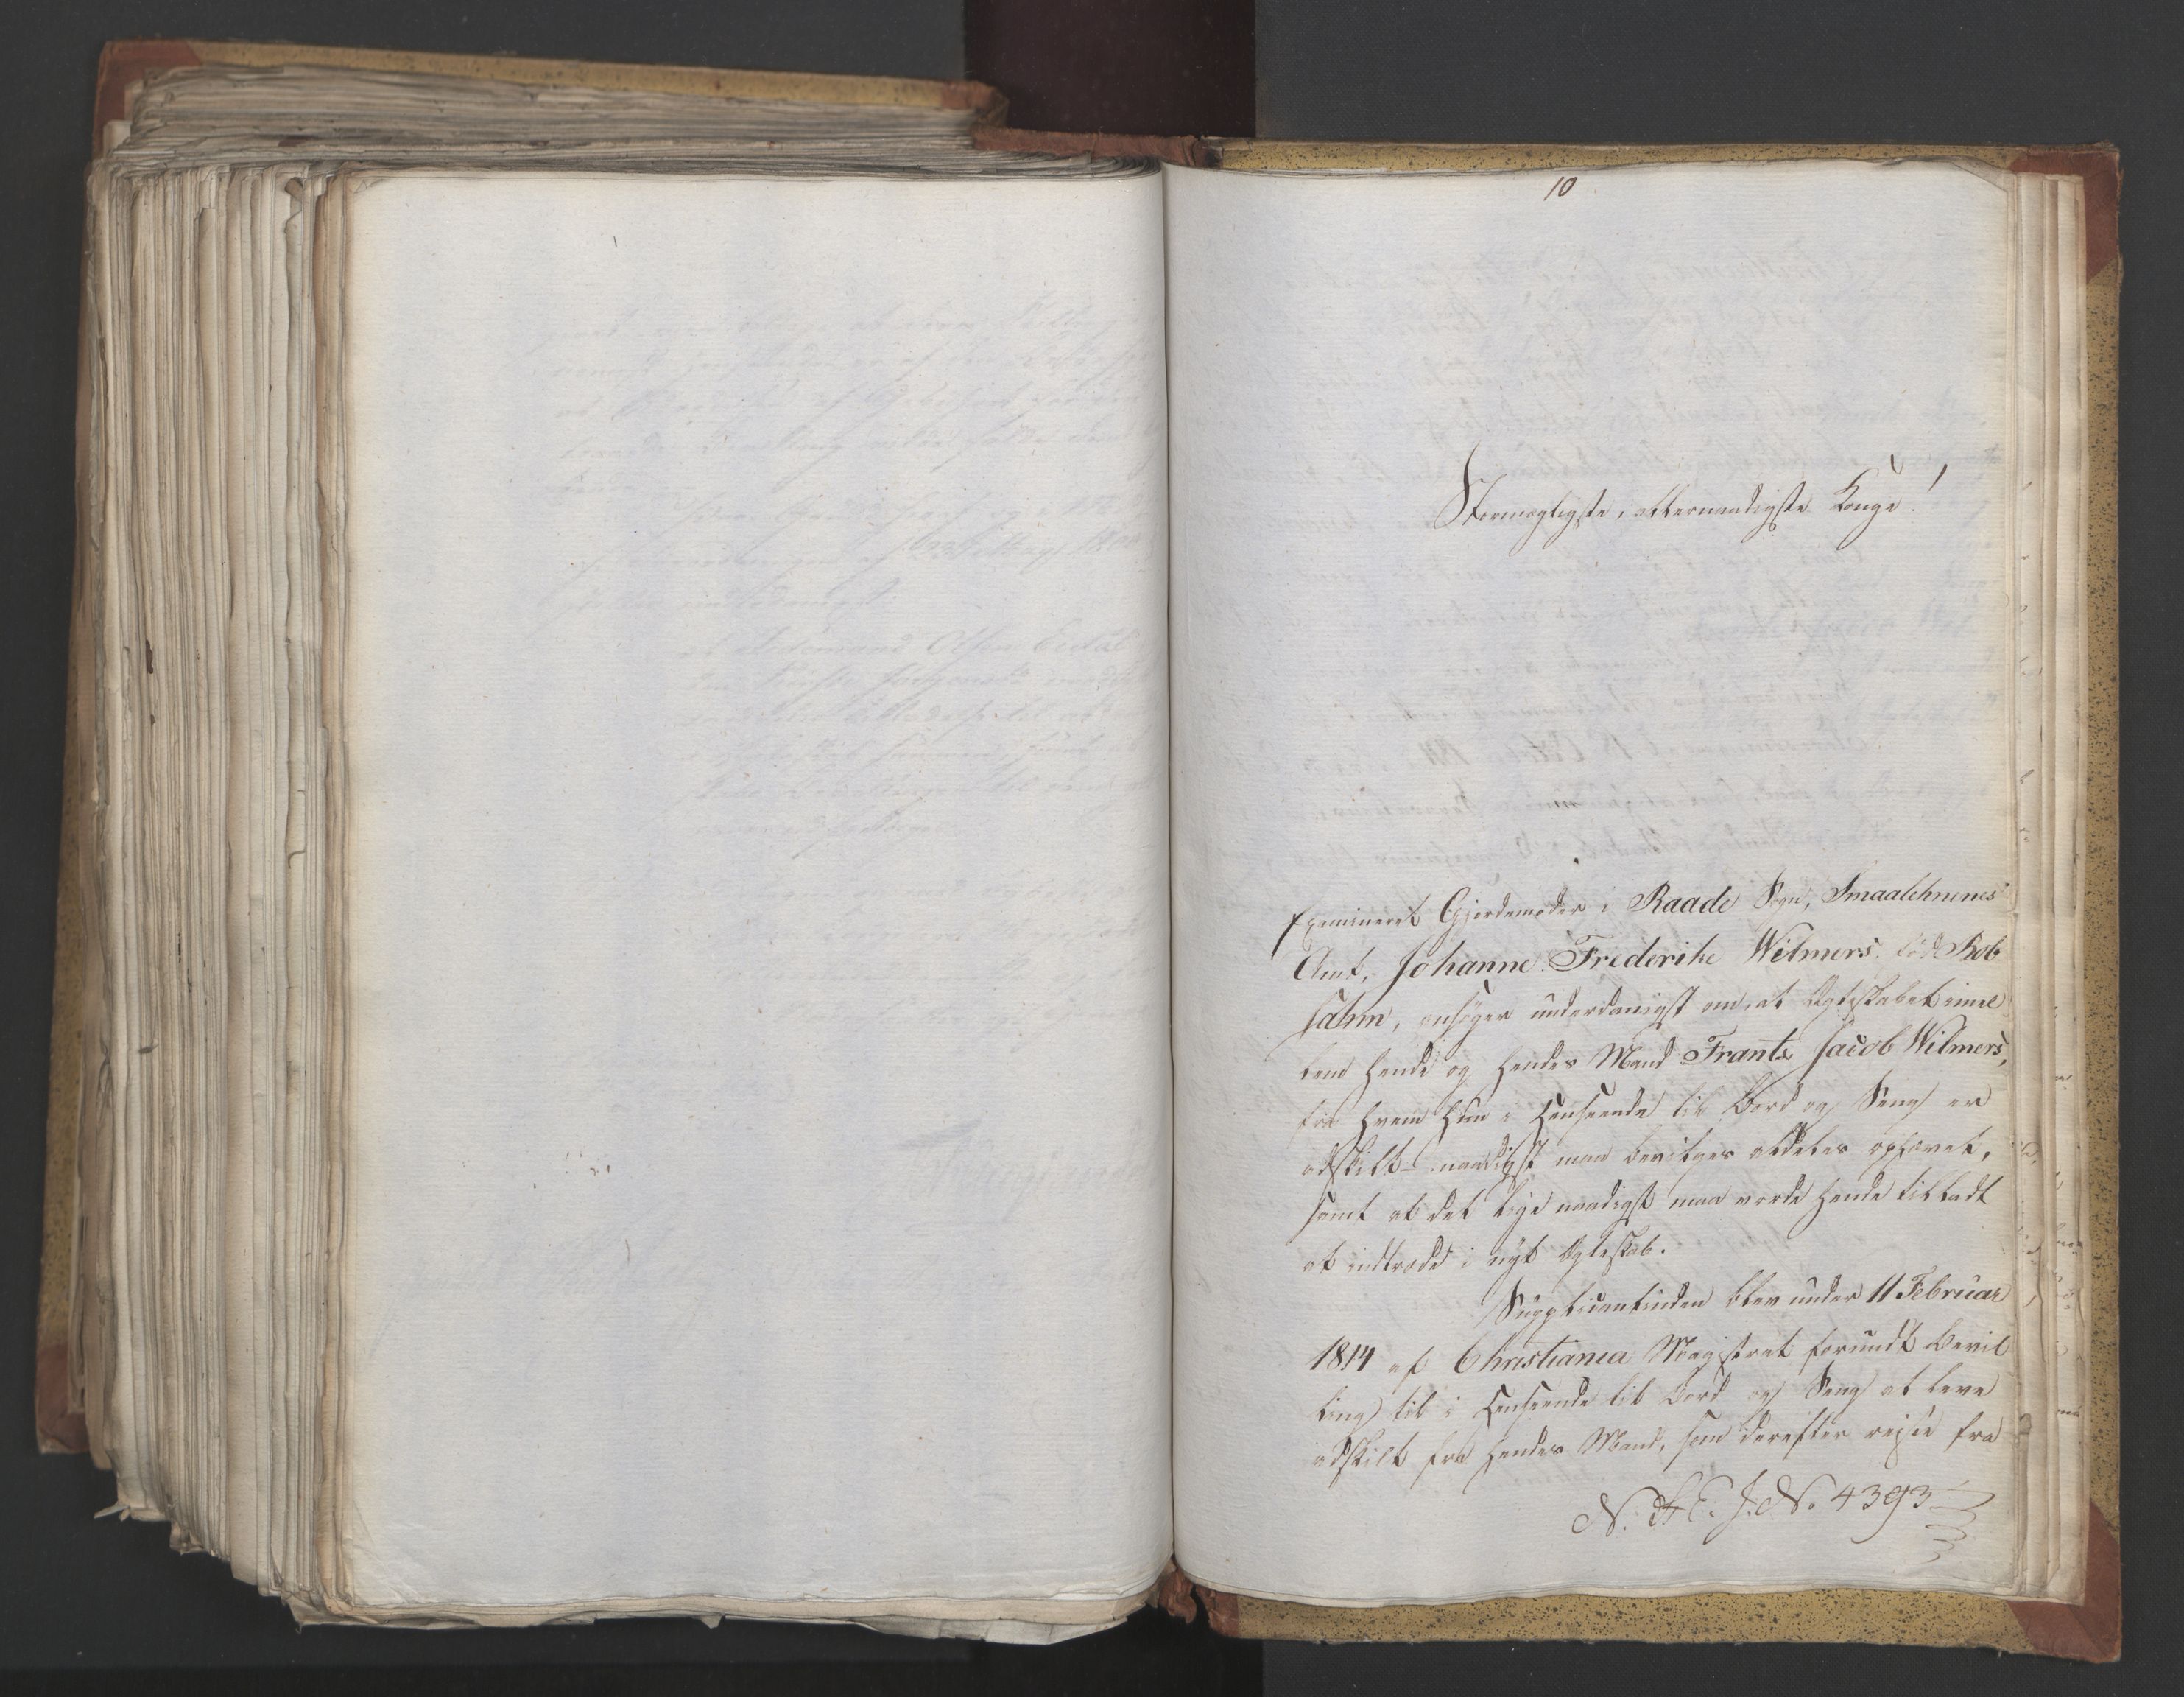 10
Stormægtigste, allernaadigste Konge!
Examineret Gjordemoder i Raade Sogn, Smaalehnenes
Amt, Johanne Frederike Wilmers, född Rob
sahm, ansøger underdanigst om, at Ægteskabet imel
lem hende og hendes Mand Frantz Jacob Wilmers,
fra hvem hun i Henseende til Bord og Seng er
adskilt naadigst maa bevilges aldeles ophævet,
samt at det lige naadigst maa vorde hende tilladt
at indtræde i nyt Ægteskab.
Supplicantinden blev under 11 Februar
1814 af Christiania Magistrat forundt Bevil
ling til i Henseende til Bord og Seng at leve
adskilt fra hendes Mand, som derefter rejste fra
J. No. 4393